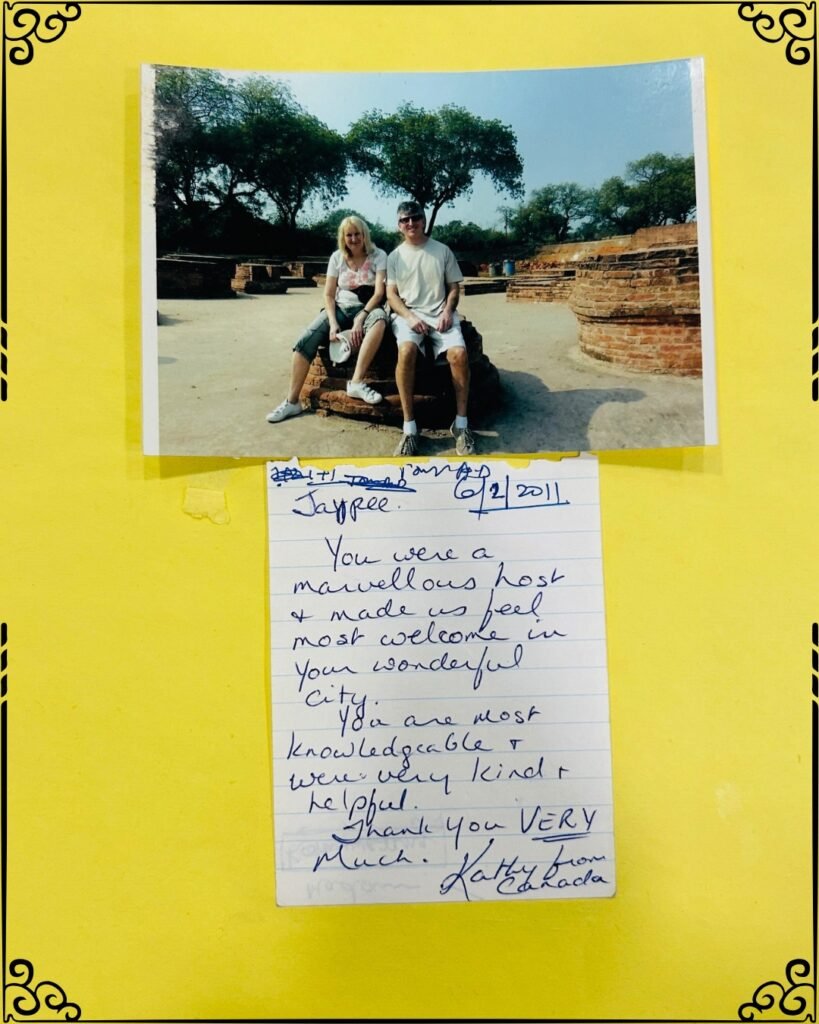 6/2/2011.
Jaypee.
You were a
marvellous host
& made us feel
most welcome in
your wonderful
city.
You are most
knowledgeable +
were very kind +
helpful.
Thank you VERY
Much.
Kathy from
Canada